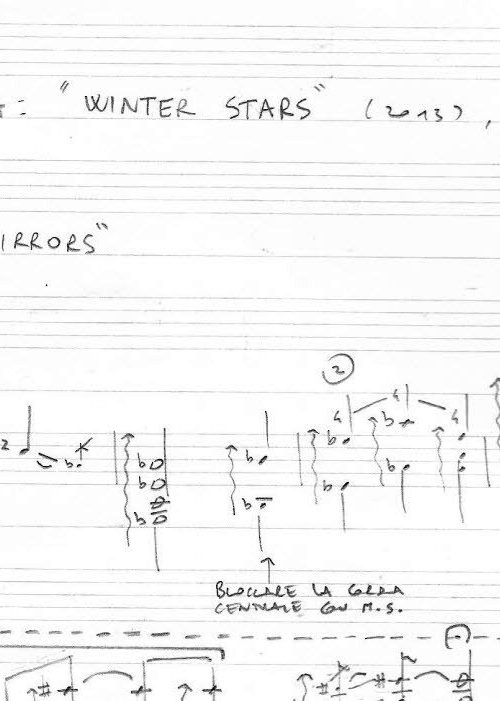 : "WINTER STARS" (2013),
IRRORS"
2
BLOCCARE LA CORDA
CENTRALE CON M.S.